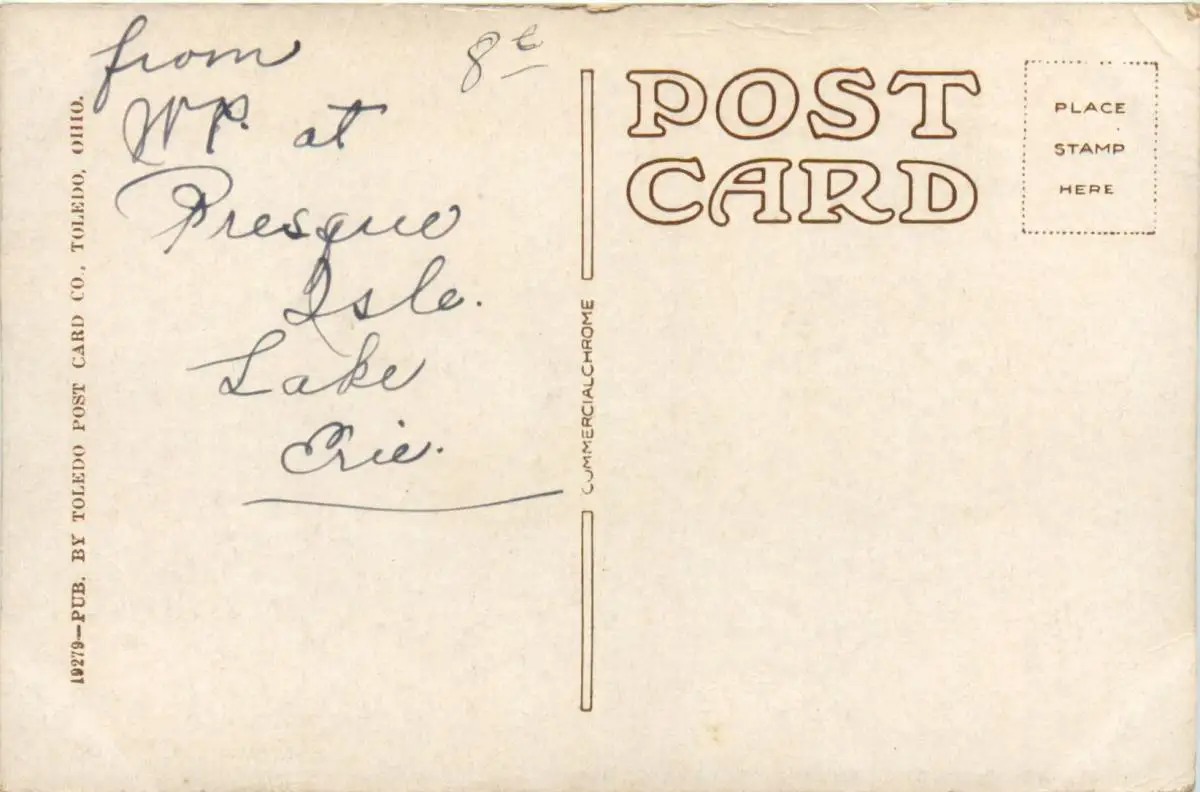 from
W.P. at
Presque
Isle.
Lake
Erie.
POST
CARD
PLACE
STAMP
HERE
COMMERCIALCHROME
19279—PUB. BY TOLEDO POST CARD CO., TOLEDO, OHIO.